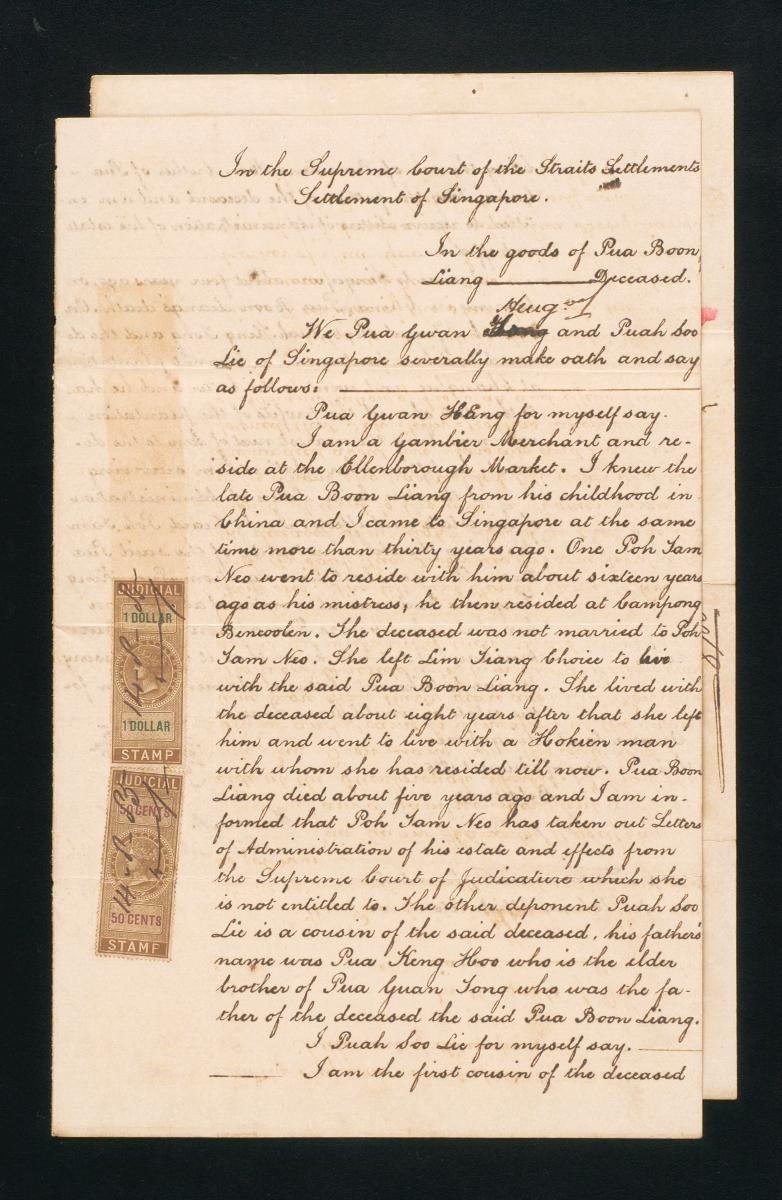 In the Supreme Court of the Straits Settlements
Settlement of Singapore.
In the goods of Pua Boon
Liang Deceased.
Heng
We Pua Gwan and Puah Soo
Lie of Singapore severally make oath and say
as follows:
Pua Gwan HEng for myself say.
I am a Gambier Merchant and re-
side at the Ellenborough Market. I knew the
late Pua Boon Liang from his childhood in
China and I came to Singapore at the same
time more than thirty years ago. One Poh Tam
Neo went to reside with him about sixteen years
ago as his mistress, he then resided at Campong
Bencoolen. The deceased was not married to Poh
Tam Neo. She left Lim Tiang Choice to live
with the said Pua Boon Liang. She lived with
the deceased about eight years after that she left
him and went to live with a Hokien man
with whom she has resided till now. Pua Boon
Liang died about five years ago and I am in-
formed that Poh Tam Neo has taken out Letters
of Administration of his estate and effects from
the Supreme Court of Judicature which she
is not entitled to. The other deponent Puah Soo
Lie is a cousin of the said deceased, his father's
name was Pua Keng Hoo who is the elder
brother of Pua Guan Tong who was the fa-
ther of the deceased the said Pua Boon Liang.
I Puah Soo Lie for myself say.
I am the first cousin of the deceased
JUDICIAL
1 DOLLAR
1 DOLLAR
STAMP
JUDICIAL
50 CENTS
50 CENTS
STAMP